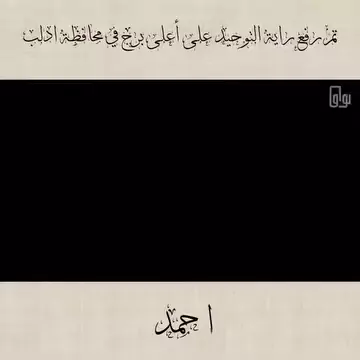 تم رفع راية التوحيد على أعلى برج في محافظة ادلب
نواف
احمد